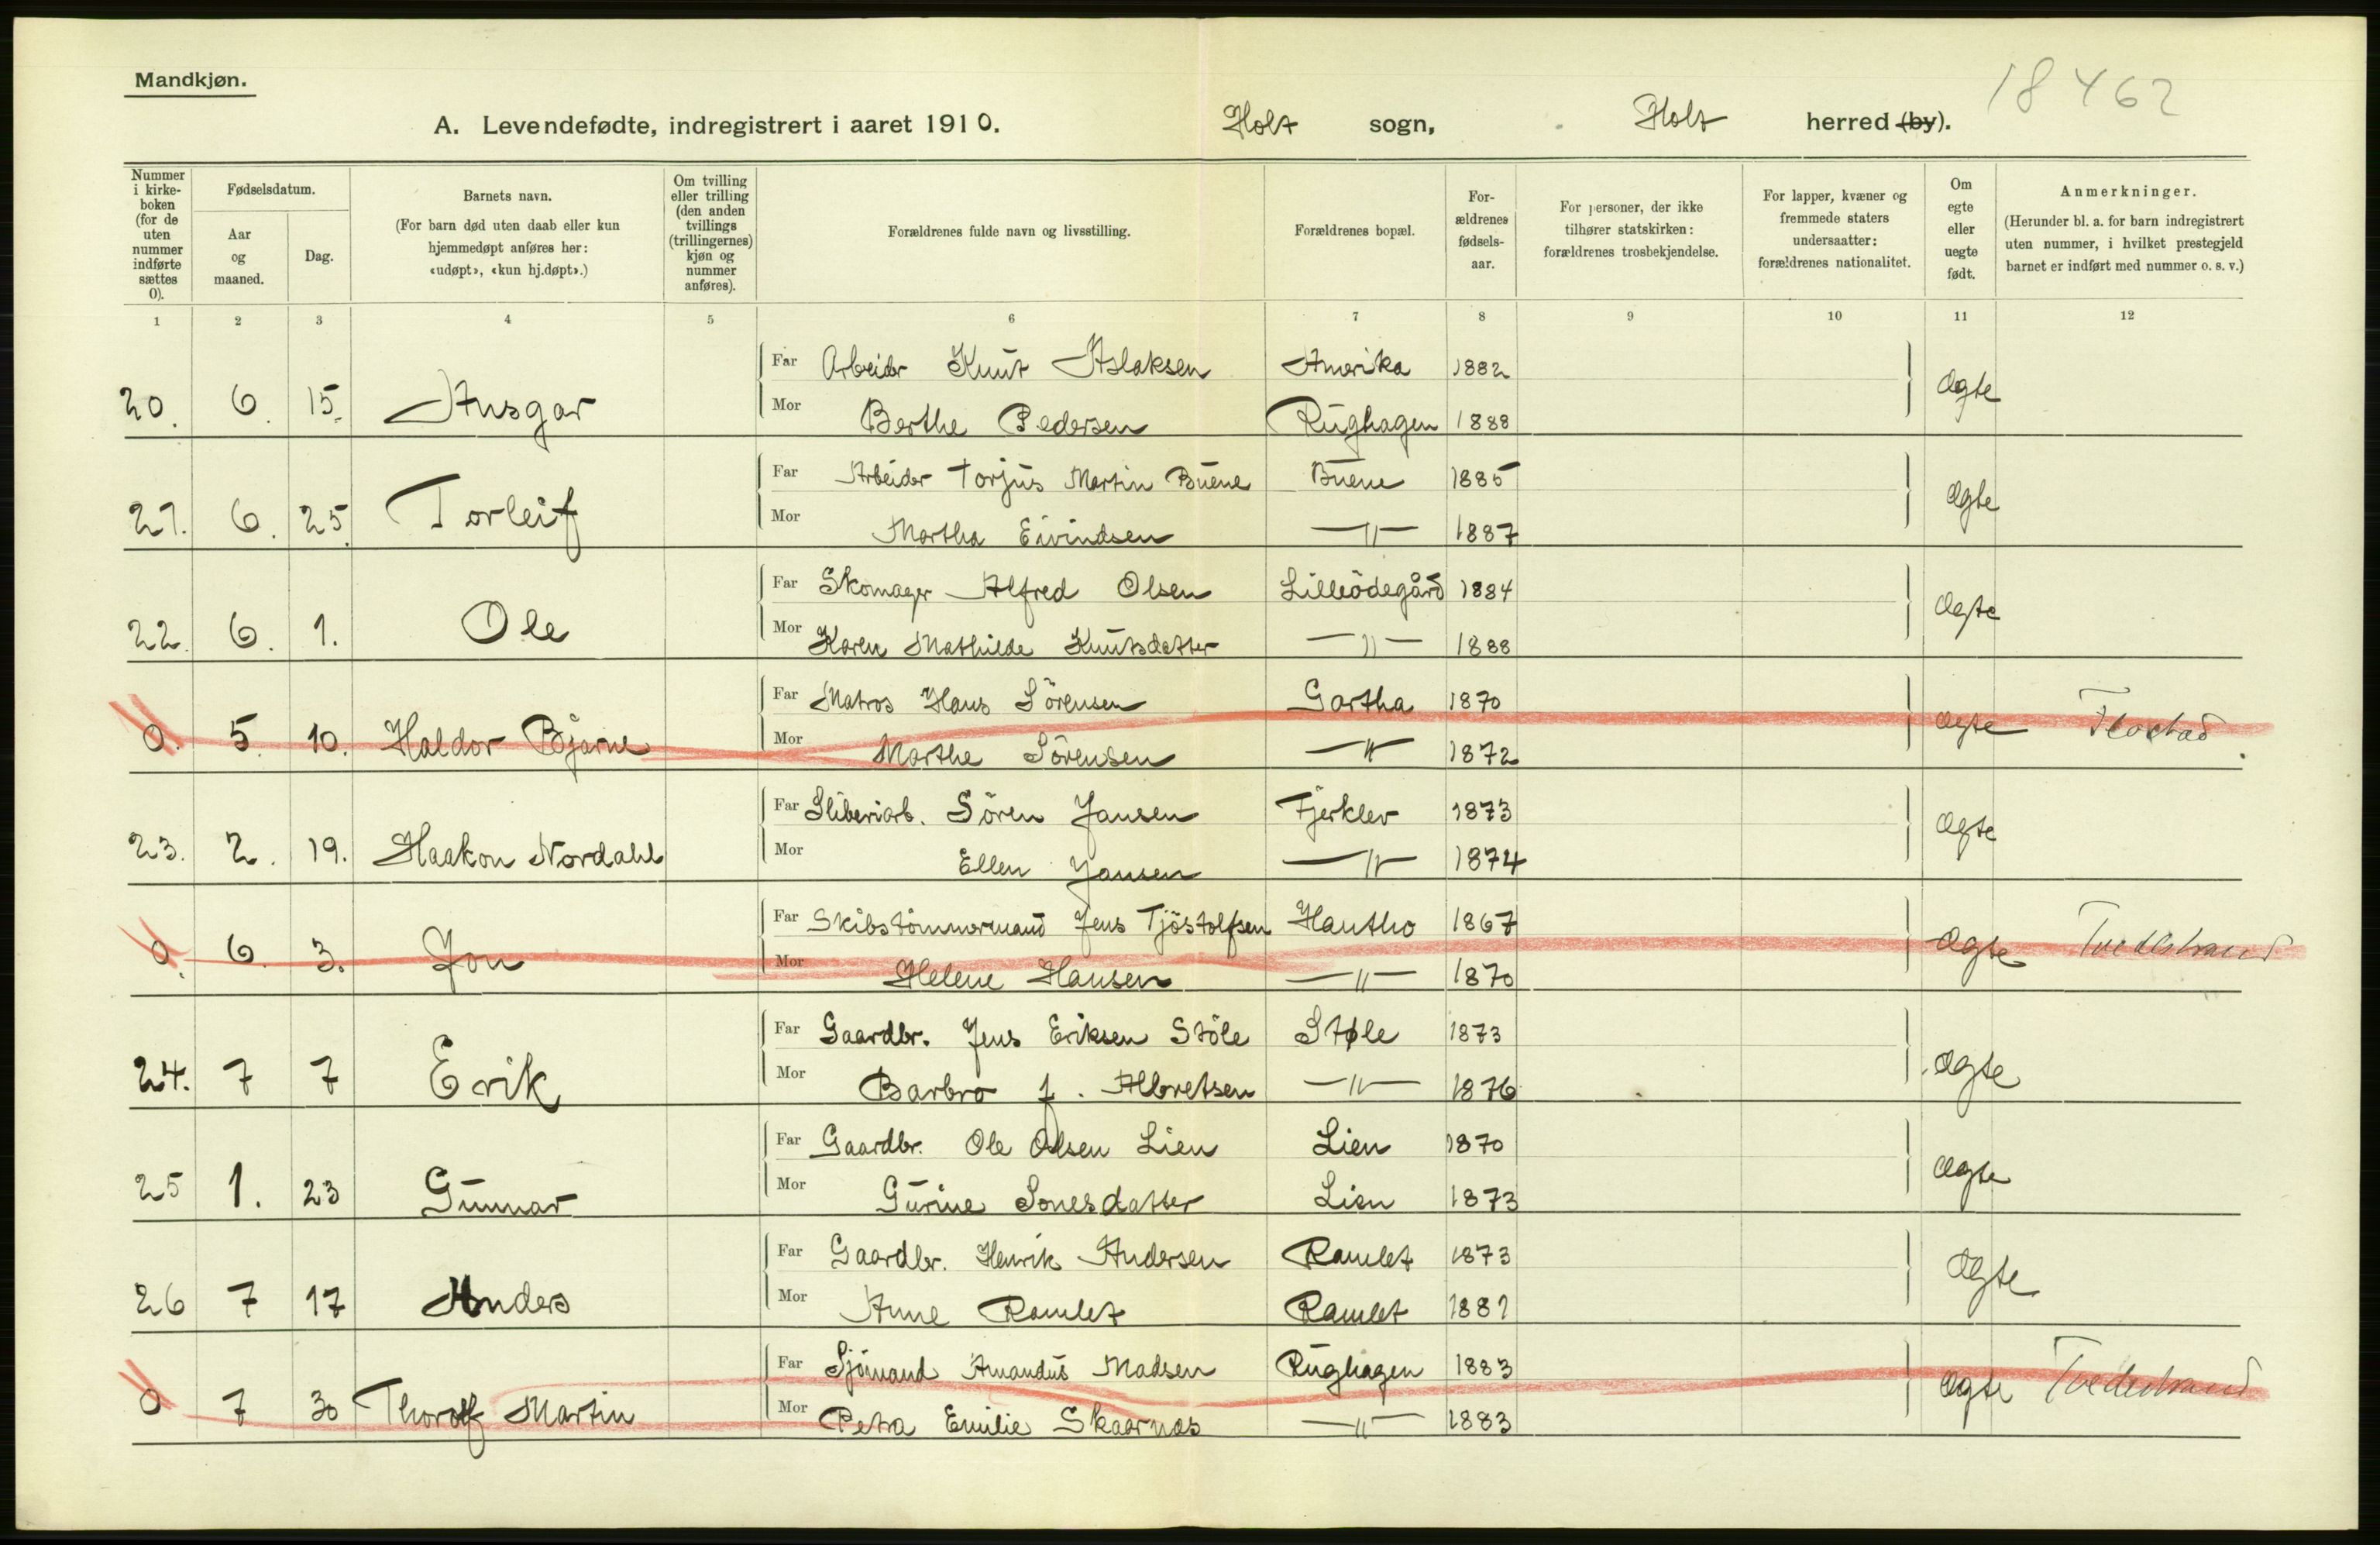 Mandkjøn.
18462
A. Levendefødte, indregistrert i aaret 1910. Holt sogn, Holt herred (by).
Nummer i kirkeboken (for de uten nummer indførte sættes 0).
Fødselsdatum.
Aar og maaned.
Dag.
Barnets navn.
(For barn død uten daab eller kun hjemmedøpt anføres her: «udøpt», «kun hj.døpt».)
Om tvilling eller trilling (den anden tvillings (trillingernes) kjøn og nummer anføres).
Forældrenes fulde navn og livsstilling.
Forældrenes bopæl.
Forældrenes fødselsaar.
For personer, der ikke tilhører statskirken: forældrenes trosbekjendelse.
For lapper, kvæner og fremmede staters undersaatter: forældrenes nationalitet.
Om egte eller uegte født.
Anmerkninger.
(Herunder bl. a. for barn indregistrert uten nummer, i hvilket prestegjeld barnet er indført med nummer o. s. v.)
1 2 3 4 5 6 7 8 9 10 11 12
Far Arbeider Knut Aslaksen Amerika 1882
20. 6. 15. Ansgar Ægte
Mor Berthe Pedersen Rughagen 1888
Far Arbeider Torjus Martin Buene Buene 1885
21. 6. 25. Torleif Ægte
Mor Martha Eivindsen —"— 1887
Far Skomager Alfred Olsen Lilleödegård 1884
22. 6. 1. Ole Ægte
Mor Karen Mathilde Knutsdatter —"— 1888
Far Matros Hans Sörensen Gartha 1870
0. 5. 10. Haldor Bjarne Ægte Flostad
Mor Marthe Sörensen —"— 1872
Far Sliberiarb. Sören Jansen Fjerklev 1873
23. 2. 19. Haakon Nordahl Ægte
Mor Ellen Jansen —"— 1874
Far Skibstömmermand Jens Tjöstolfsen Hantho 1867
0. 6. 3. Jon Ægte Tvedestrand
Mor Helene Hansen —"— 1870
Far Gaardbr. Jens Eriksen Stöle Støle 1873
24. 7 7 Erik Ægte
Mor Barbro f. Albretsen —"— 1876
Far Gaardbr. Ole Olsen Lien Lien 1870
25 1. 23 Gunnar Ægte
Mor Gurine Sonesdatter Lien 1873
Far Gaardbr. Henrik Andersen Ramlet 1873
26 7 17 Anders Ægte
Mor Anne Ramlet Ramlet 1881
Far Sjömand Amandus Madsen Rughagen 1883
0 7 30 Thorolf Martin Ægte Tvedestrand
Mor Petra Emilie Skaarnæs —"— 1883